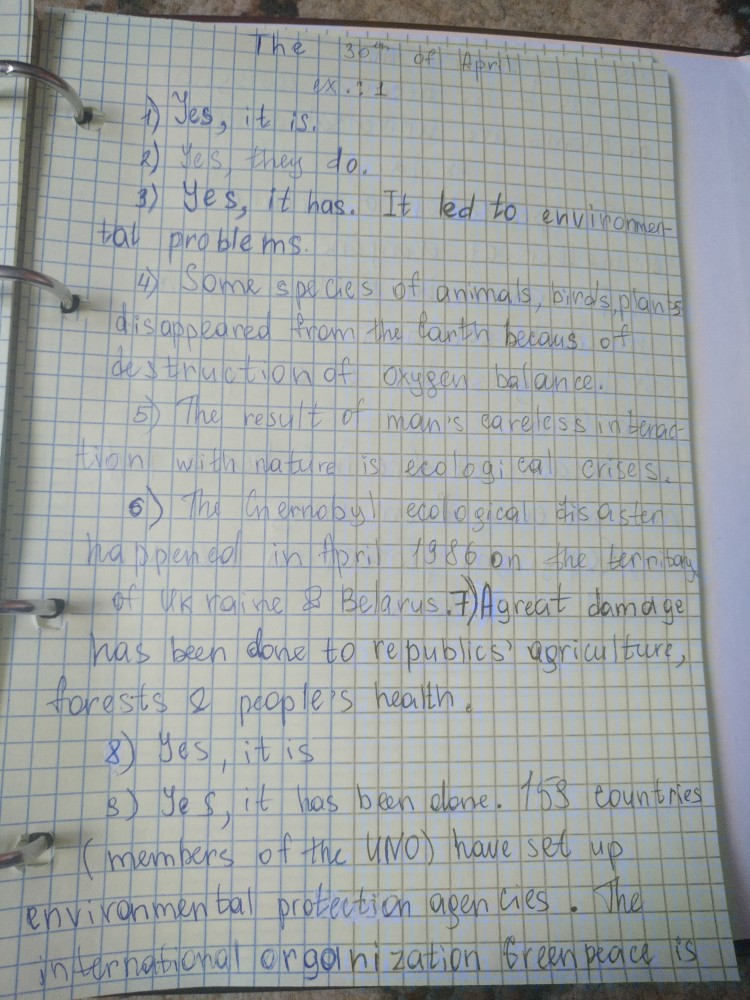 The 30th of April
ex.: 1
1) Yes, it is.
2) Yes, they do.
3) Yes, it has. It led to environmen-
tal problems.
4) Some species of animals, birds, plants
disappeared from the Earth becaus of
destruction of oxygen balance.
5) The result of man's careless interac-
tion with nature is ecological crises.
6) The Chernobyl ecological disaster
happened in April 1986 on the territory
of Ukraine & Belarus. 7) A great damage
has been done to republics' agriculture,
forests & people's health.
8) Yes, it is
9) Yes, it has been done. 159 countries
(members of the UNO) have set up
environmental protection agencies. The
international organization Greenpeace is